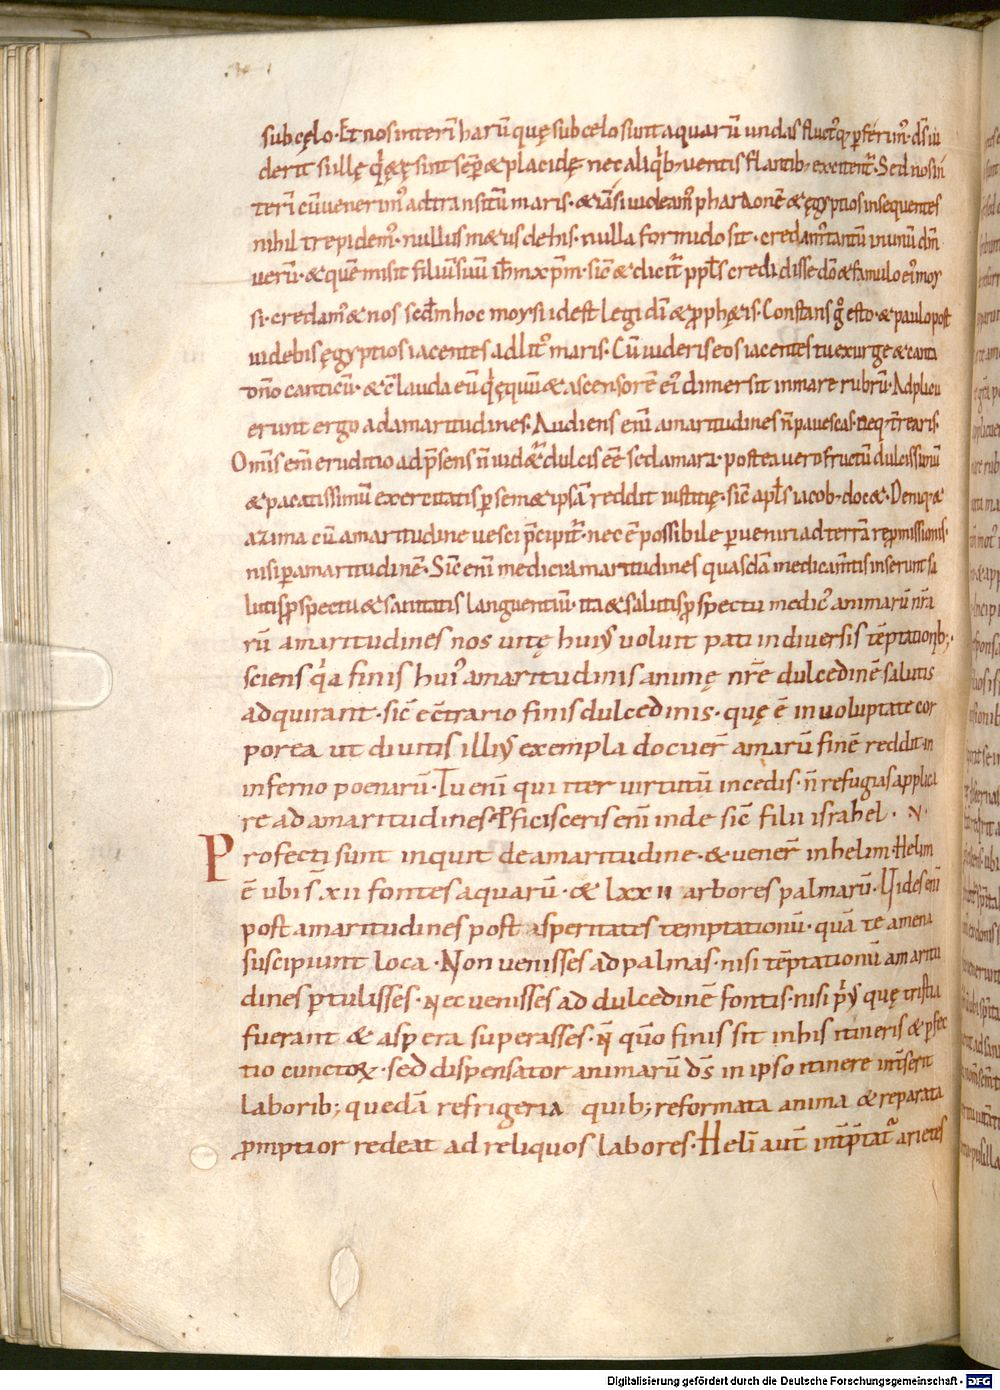 sub cęlo · Et nos interī harū quę sub celo sunt aquarū undas fluctusq; p̄ferim᷒ · ds̄ ui
derit si illę semp̄ & placidę nec aliq̇b; ventis flantib;
terī cū venerim᷒ ad transitū maris · & si uideam᷒ pharaonē & ęgyptios insequentes
nihil trepidem᷒ · nullus m&us de his · nulla formido sit · credam᷒ tantū in unū dm̄
verū · & quē misit filiū suū ih̄m xp̄m · sic̄ & dicit᷑ ppl̄s credidisse dō & famulo ei᷒ moy
si · credam᷒ & nos scd̄m hoc moysi id est legi dī & p̱ph&is · Constans ḡ esto · & paulo post
uidebis ęgyptios iacentes ad lit᷒ maris · Cū uideris eos iacentes tu exurge & canta
dn̄o canticū · & c̄lauda eū q̇ ęquū & ascensorē ei᷒ dimersit in mare rubrū · Adplicu
erunt ergo ad amaritudines · Audiens enī amaritudines n̄ pauescas · neq; t̄rearis ·
Om̄is enī eruditio ad p̄sens n̄ uid&᷑ dulcis eē sed amara · postea vero fructū dulcissimū
& pacatissimū exercitatis p̱ sem&ipsā reddit iustitię · sic̄ apl̄s iacob; doc& · Deniq; &
azima cū amaritudine vesci p̄cipit᷑ · nec ē possibile p̱veniri ad terrā rep̱missionis ·
nisi p̱ amaritudinē · Sic̄ enī medici amaritudines quasdā medicam̄tis inserunt sa
lutis p̱spectu & sanitatis languentiū · ita & salutis p̱spectu medic᷒ animarū nr̄a
rū amaritudines nos vitę hui᷒ voluit pati in diversis tēptationib; ·
sciens q̇a finis hui᷒ amaritudinis animę nr̄e dulcedinē salutis
adquirant · sic̄ e c̄trario finis dulcedinis · quę ē in voluptate cor
porea ut divitis illi᷒ exempla docuer̄ amarū finē reddit in
inferno poenarū · Tu enī qui iter virtutū incedis · n̄ refugias applica
re ad amaritudines · P̱ficisceris enī inde sic̄ filii israhel · N ·
Profecti sunt inquit de amaritudine · & vener̄ in helim · Helim
ē ubi s̄ · xii fontes aquarū · & lxxii arbores palmarū · Uides enī
post amaritudines post asperitates temptationū · quā te amena
suscipiunt loca · Non venisses ad palmas · nisi tēptationū amaritu
dines p̱tulisses · nec venisses ad dulcedinē fontis · nisi ṗ᷒ quę tristia
fuerant & aspera superasses · n̄ quō finis sit in his itineris & p̱fec
tio cunctorꝝ · sed dispensator animarū ds̄ in ipso itinere int̄serit
laborib; quedā refrigeria quib; reformata anima & reparata
p̱mptior redeat ad reliquos labores · Helī aut̄ int̄p̱tat᷑ arietes